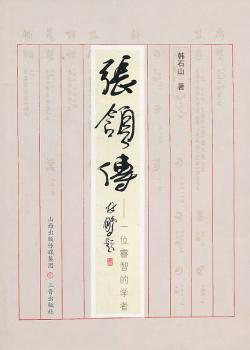 韩石山 著
張頷傳
林鵬題
——一位睿智的学者
山西出版传媒集团
三晋出版社